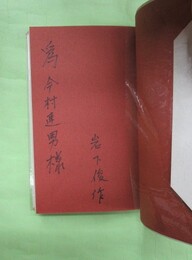 為
今村進男様
岩下俊作